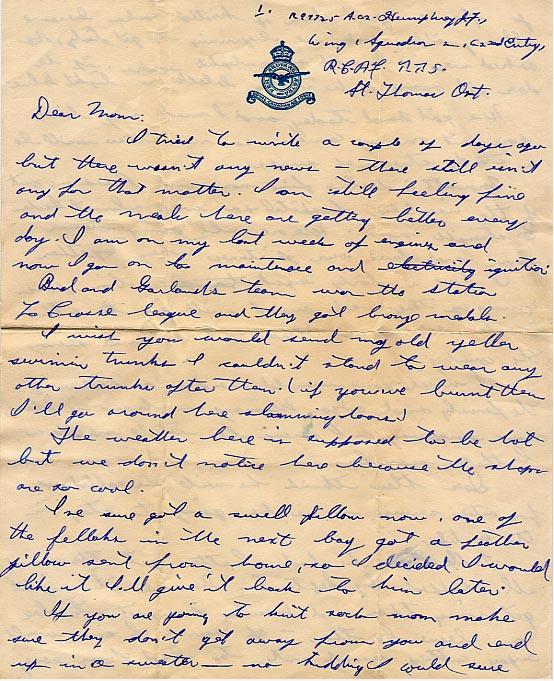 1. R97725 Ac2. Humphrey J.F.,
Wing 1 Squadron 2, Entry,
R.C.A.F. T.T.S.
St. Thomas Ont.
Dear Mom:
I tried to write a couple of days ago
but there wasn't any news – there still isn't
any for that matter. I am still feeling fine
and the meals here are getting better every
day. I am on my last week of engines and
now I go on to maintenace and electricity ignition
Bud and Garland's team won the station
La Crosse league and they got bronze medals.
I wish you would send my old yeller
swimin trunks I couldn't stand to wear any
other trunks after them. (if you've burnt them
I'll go around here slamming doors)
The weather here is supposed to be hot
but we don't notice here because the shops
are so cool.
I've sure got a swell pillow now, one of
the fellahs in the next bay got a feather
pillow sent from home, so I decided I would
like it I'll give it back to him later.
If you are going to knit socks mom make
sure they don't get away from you and end
up in a sweater – no kidding I could sure